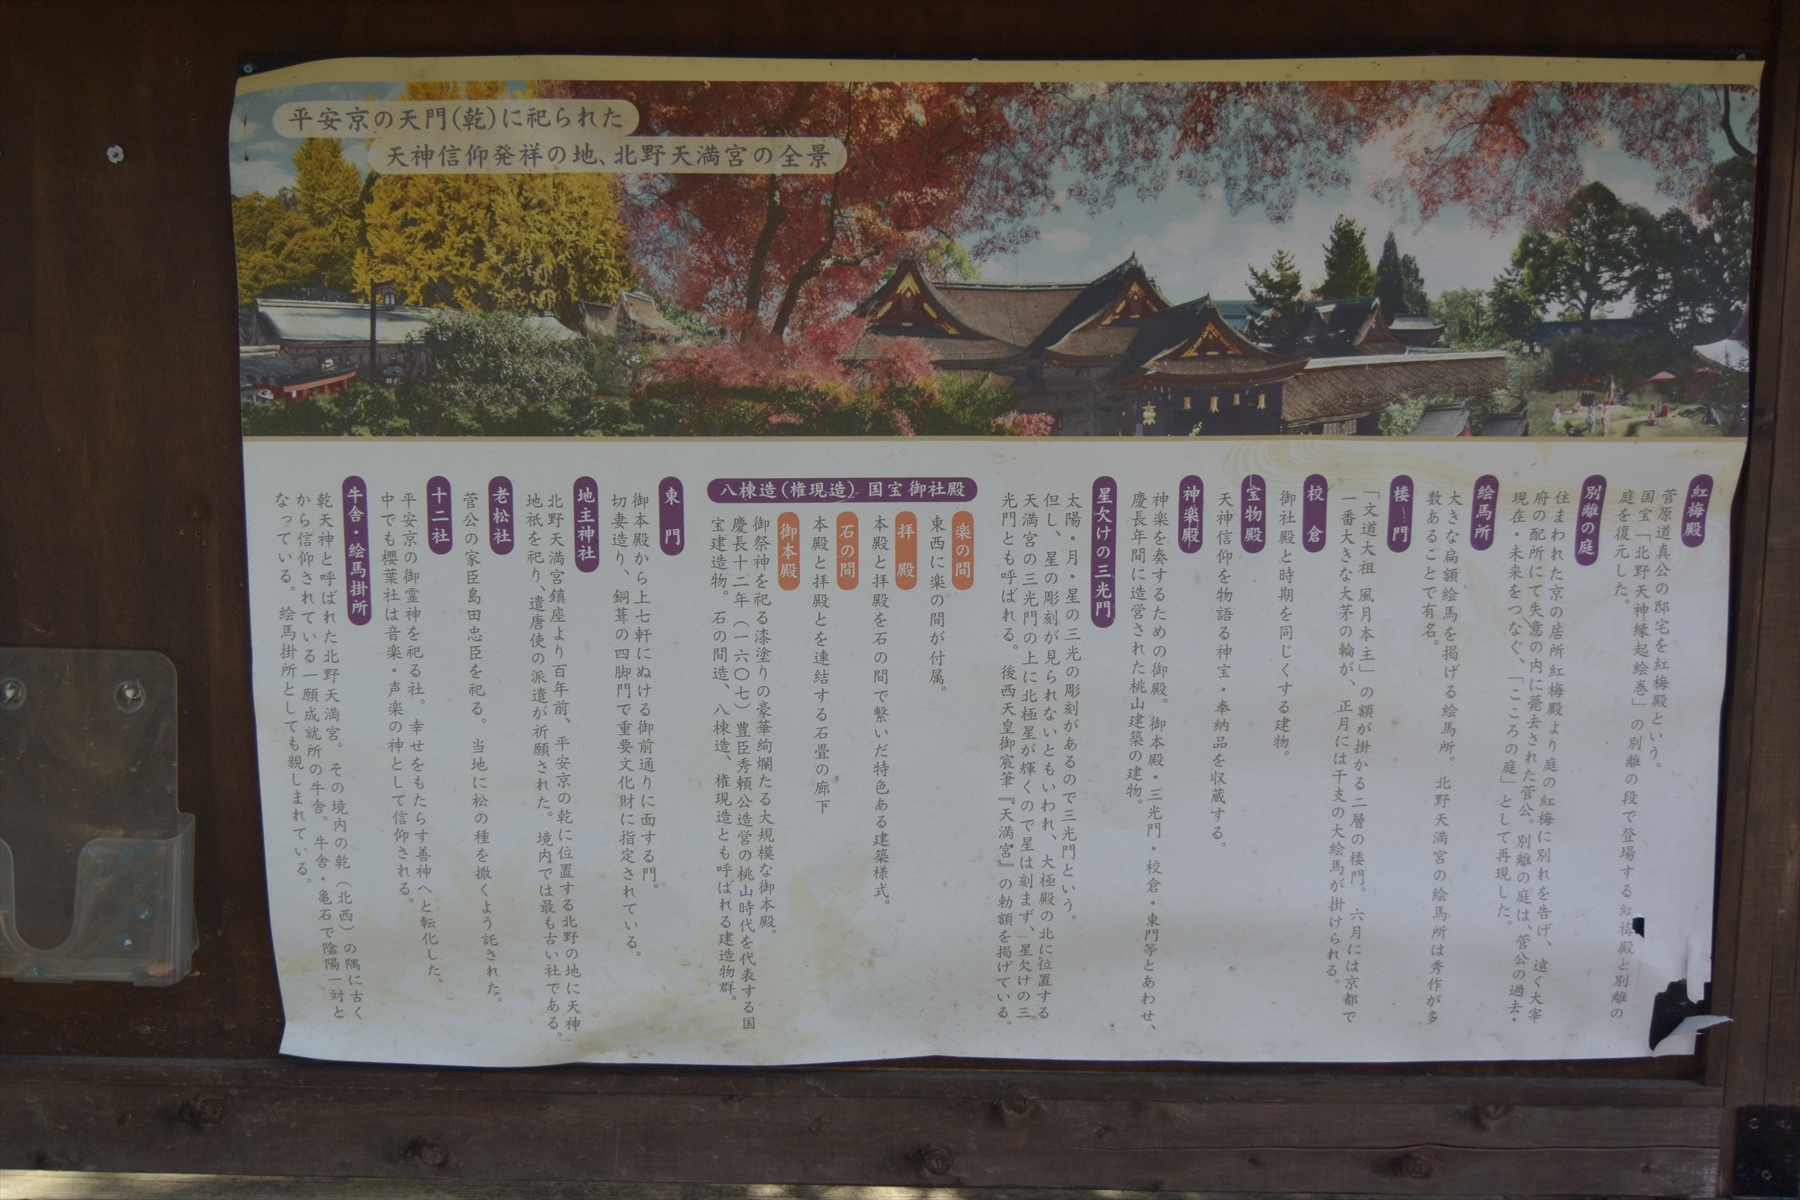 平安京の天門(乾)に祀られた
天神信仰発祥の地、北野天満宮の全景
紅梅殿
菅原道真公の邸宅を紅梅殿という。
国宝「北野天神縁起絵巻」の別離の段で登場する紅梅殿と別離の
庭を復元した。
別離の庭
住まわれた京の居所紅梅殿より庭の紅梅に別れを告げ、遠く大宰
府の配所にて失意の内に薨去された菅公。別離の庭は、菅公の過去・
現在・未来をつなぐ、「こころの庭」として再現した。
絵馬所
大きな扁額絵馬を掲げる絵馬所。北野天満宮の絵馬所は秀作が多
数あることで有名。
楼門
「文道大祖 風月本主」の額が掛かる二層の楼門。六月には京都で
一番大きな大茅の輪が、正月には干支の大絵馬が掛けられる。
校倉
御社殿と時期を同じくする建物。
宝物殿
天神信仰を物語る神宝・奉納品を収蔵する。
神楽殿
神楽を奏するための御殿。御本殿・三光門・校倉・東門等とあわせ、
慶長年間に造営された桃山建築の建物。
星欠けの三光門
太陽・月・星の三光の彫刻があるので三光門という。
但し、星の彫刻が見られないともいわれ、大極殿の北に位置する
天満宮の三光門の上に北極星が輝くので星は刻まず、星欠けの三
光門とも呼ばれる。後西天皇御宸筆『天満宮』の勅額を掲げている。
八棟造(権現造) 国宝 御社殿
楽の間
東西に楽の間が付属。
拝殿
本殿と拝殿を石の間で繋いだ特色ある建築様式。
石の間
本殿と拝殿とを連結する石畳の廊下
御本殿
御祭神を祀る漆塗りの豪華絢爛たる大規模な御本殿。
慶長十二年(一六〇七)豊臣秀頼公造営の桃山時代を代表する国
宝建造物。石の間造、八棟造、権現造とも呼ばれる建造物群。
東門
御本殿から上七軒にぬける御前通りに面する門。
切妻造り、銅葺の四脚門で重要文化財に指定されている。
地主神社
北野天満宮鎮座より百年前、平安京の乾に位置する北野の地に天神
地祇を祀り、遣唐使の派遣が祈願された。境内では最も古い社である。
老松社
菅公の家臣島田忠臣を祀る。当地に松の種を撒くよう託された。
十二社
平安京の御霊神を祀る社。幸せをもたらす善神へと転化した。
中でも櫻葉社は音楽・声楽の神として信仰される。
牛舎・絵馬掛所
乾天神と呼ばれた北野天満宮。その境内の乾(北西)の隅に古く
から信仰されている一願成就所の牛舎。牛舎・亀石で陰陽一対と
なっている。絵馬掛所としても親しまれている。